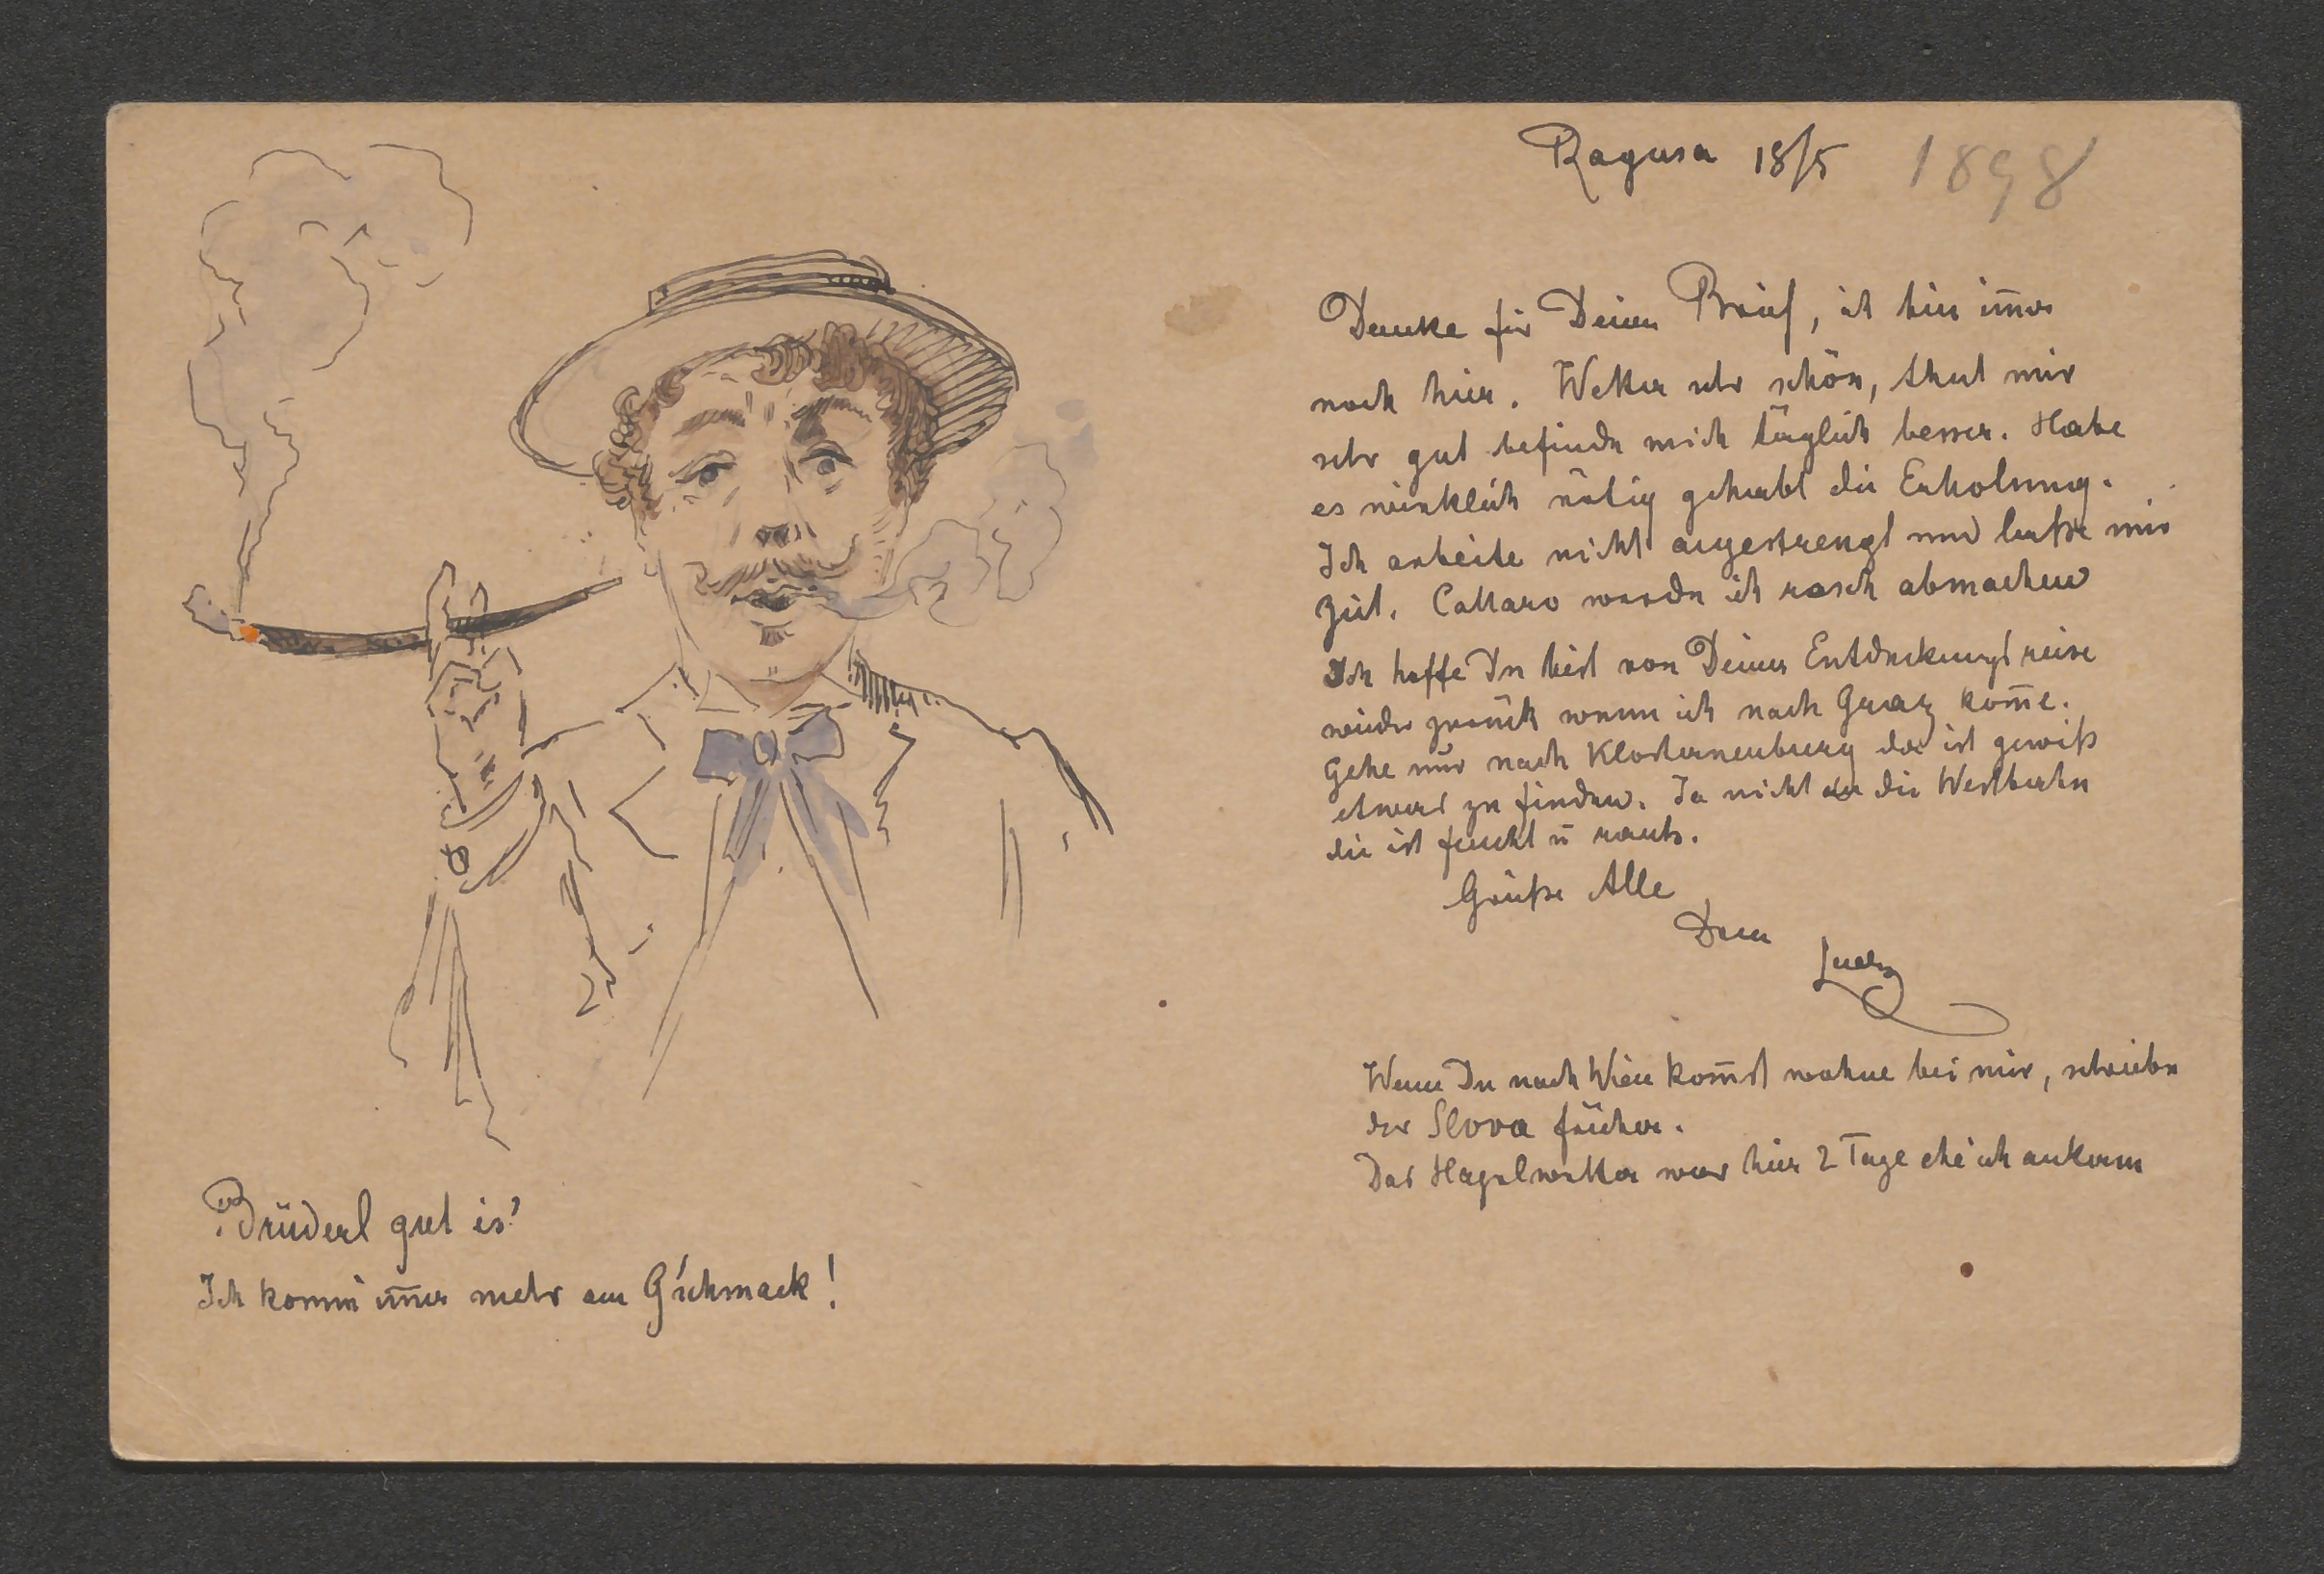 Ragusa 18/5 1898
Danke für Deinen Brief, ich bin im̅er
noch hier. Wetter sehr schön, thut mir
sehr gut befinde mich täglich besser. Habe
es wirklich nötig gehabt die Erholung.
Ich arbeite nicht angestrengt und lasse mir
Zeit. Cattaro werde ich rasch abmachen
Ich hoffe Du bist von Deiner Entdeckungsreise
wieder zurück wenn ich nach Graz kom̅e.
Gehe nur nach Klosterneuburg da ist gewiß
etwas zu finden. Ja nicht an die Westbahn
die ist feucht u̅ rauh.
Grüße Alle
Dein
Wenn Du nach Wien kom̅st wohne bei mir, schreibe
der Slova früher.
Das Hagelwetter war hier 2 Tage ehe ich ankam
Brüderl gut is'
Ich komm im̅er mehr am G'schmack!